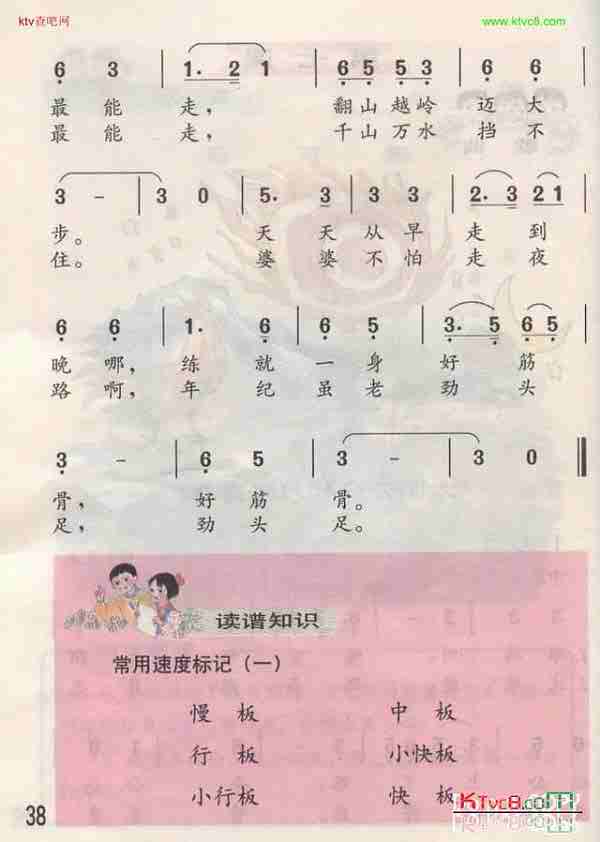 ktv查吧网 www.ktvc8.com
6 3 | 1. 2 1 | 6 5 5 3 | 6 6 |
最 能 走， 翻 山 越 岭 迈 大
最 能 走， 千 山 万 水 挡 不
3 - | 3 0 | 5. 3 | 3 3 | 2. 3 2 1 |
步。 天 天 从 早 走 到
住。 婆 婆 不 怕 走 夜
6 6 | 1. 6 | 6 5 | 3. 5 6 5 |
晚 哪， 练 就 一 身 好 筋
路 啊， 年 纪 虽 老 劲 头
3 - | 6 5 | 3 - | 3 0 ‖
骨， 好 筋 骨。
足， 劲 头 足。
读谱知识
常用速度标记（一）
慢 板 中 板
行 板 小快板
小行板 快 板
38